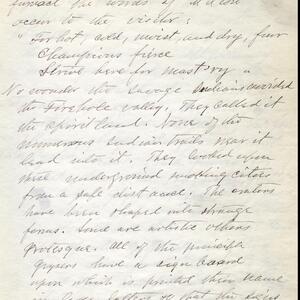 furnace the words of
occur to the visitor:
"For hot, cold, moist, and dry, four
Champions fierce
Strive here for mastery"
No wonder the savage Indians avoided
the Firehole valley. They called it
the spirit land. None of the
numerous Indian trails near it
lead into it. They looked upon
these underground smoking
from a safe distance. The craters
have been shaped into strange
forms. Some are artistic others
Grotesque. All of the principle
Geysers have a sign board
upon which is printed their name